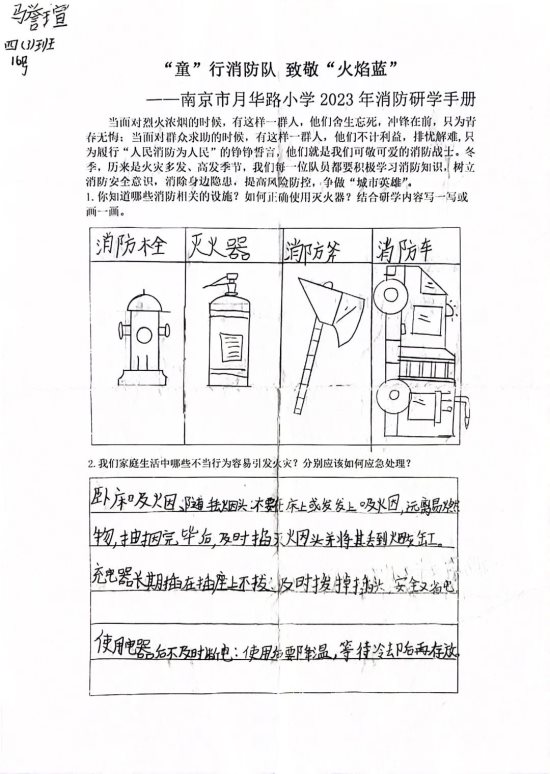 马誉瑄
四(3)班
16号
“童”行消防队 致敬“火焰蓝”
——南京市月华路小学 2023 年消防研学手册
当面对烈火浓烟的时候，有这样一群人，他们舍生忘死，冲锋在前，只为青
春无悔；当面对群众求助的时候，有这样一群人，他们不计利益，排忧解难，只
为履行“人民消防为人民”的铮铮誓言，他们就是我们可敬可爱的消防战士。冬
季，历来是火灾多发、高发季节，我们每一位队员都要积极学习消防知识，树立
消防安全意识，消除身边隐患，提高风险防控，争做“城市英雄”。
1.你知道哪些消防相关的设施？如何正确使用灭火器？结合研学内容写一写或
画一画。
消防栓 灭火器 消防斧 消防车
2.我们家庭生活中哪些不当行为容易引发火灾？分别应该如何应急处理？
卧床吸烟、随意扔烟头：不要在床上或沙发上吸烟，远离易燃
物，抽烟完毕后，及时掐灭烟头并将其丢到烟灰缸。
充电器长期插在插座上不拔：及时拔掉插头，安全又省电
使用电器后不及时断电：使用后要降温，等待冷却后再存放。